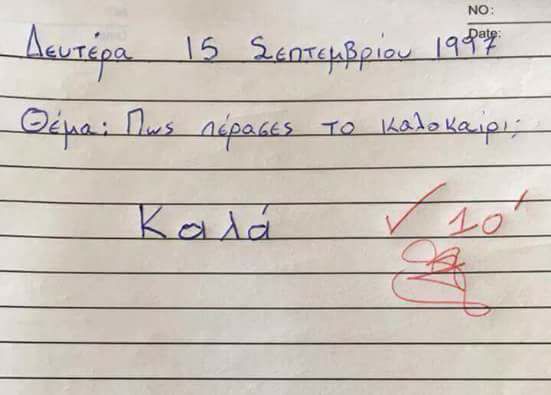 NO:
Date:
Δευτέρα 15 Σεπτεμβρίου 1997
Θέμα: Πως πέρασες το καλοκαίρι;
Καλά
✓ 10'